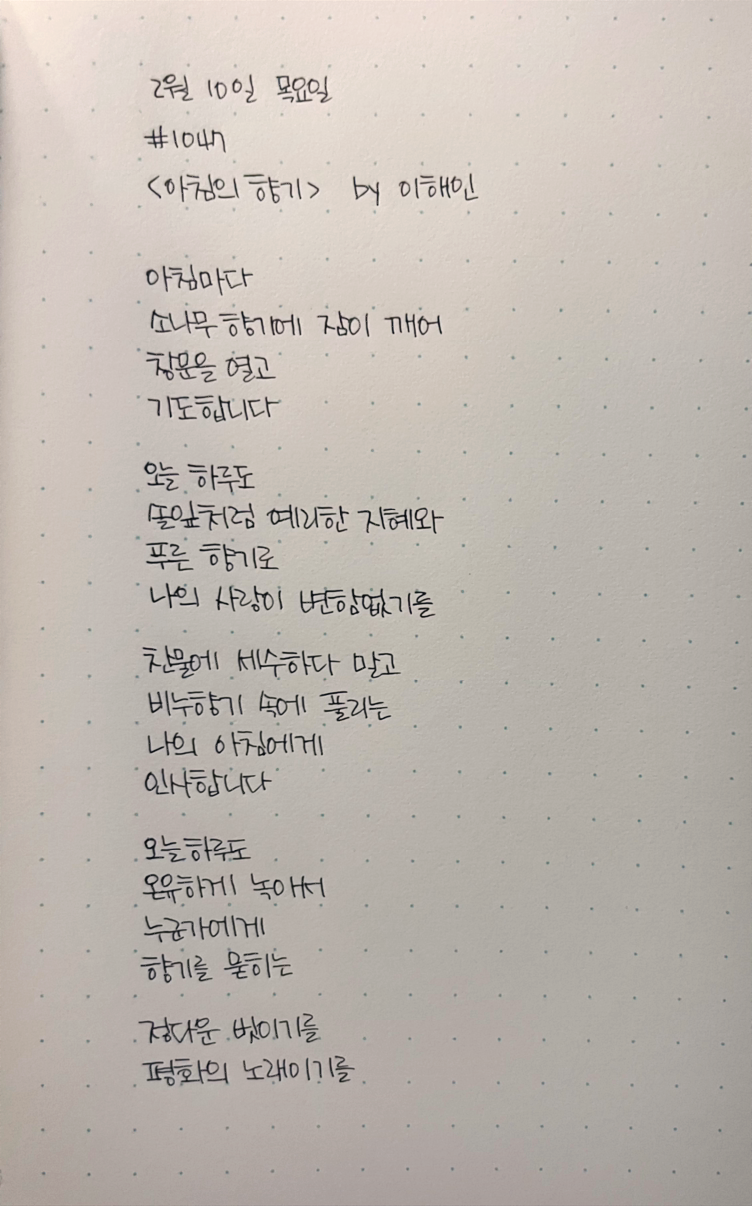 2월 10일 목요일
#1047
<아침의 향기> by 이해인
아침마다
소나무 향기에 잠이 깨어
창문을 열고
기도합니다
오늘 하루도
솔잎처럼 예리한 지혜와
푸른 향기로
나의 사랑이 변함없기를
찬물에 세수하다 말고
비누향기 속에 풀리는
나의 아침에게
인사합니다
오늘하루도
온유하게 녹아서
누군가에게
향기를 묻히는
정다운 벗이기를
평화의 노래이기를